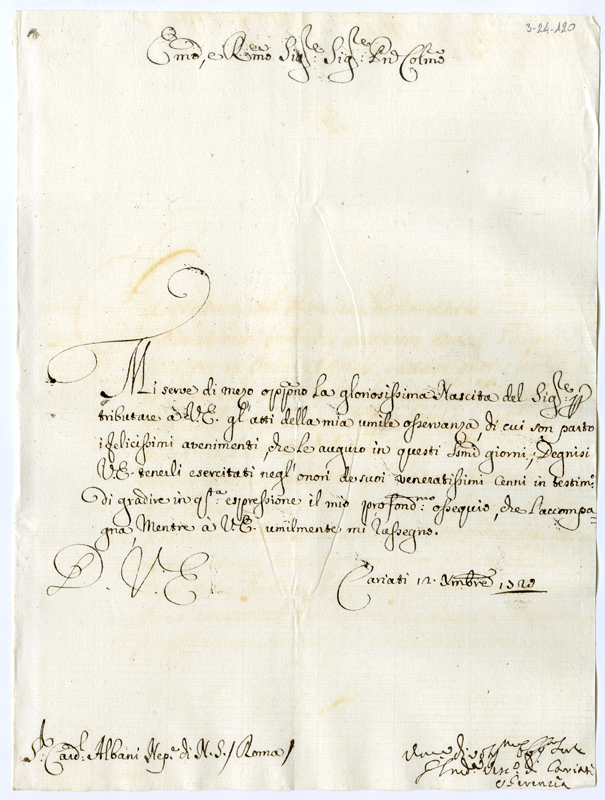 3-24-120
Emo, e Rmo Sigre: Sigre: Pnē Colmo
Mi serve di mezo oppno la gloriosissima Nascita del Sigre: pr
tributare à V.E. gl'atti della mia umile osservanza, di cui son parto
i felicissimi avenimenti, che le auguro in questi Smi giorni, Degnisi
V.E. tenerli esercitati negl'onori de suoi veneratissimi Cenni in testimo:
di gradire in qsta: espressione il mio profondmo ossequio, che l'accompa=
gna Mentre à V.E. umilmente mi rassegno.
D. V. E.
Cariati 12. Xmbre 1720
Sr. Cardl: Albani Nepe: di N.S./ Roma/
Vesco: di Cariati
e Gerenzia